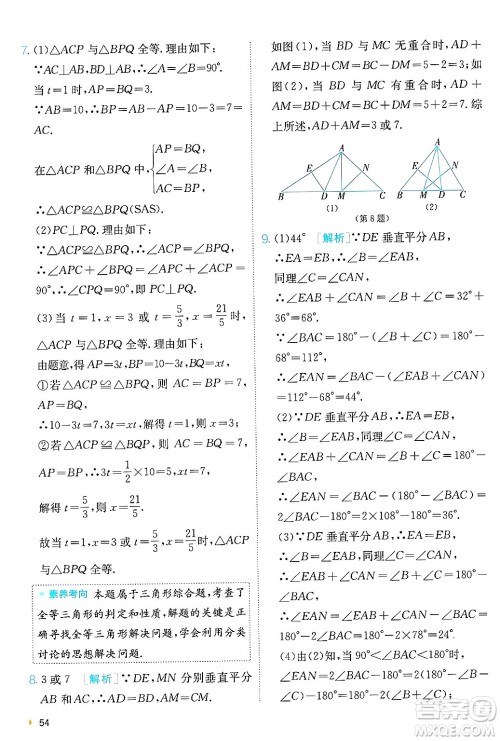 7. (1)△ACP 与△BPQ 全等. 理由如下:
∵AC⊥AB,BD⊥AB,∴∠A=∠B=90°.
当 t=1 时,AP=BQ=3.
∵AB=10,∴BP=AB-AP=10-3=7=
AC.
在△ACP 和△BPQ 中,{AP=BQ,
∠A=∠B,
AC=BP,
∴△ACP≌△BPQ(SAS).
(2)PC⊥PQ. 理由如下:
∵△ACP≌△BPQ,∴∠C=∠BPQ.
∴∠APC+∠BPQ=∠APC+∠C=
90°. ∴∠CPQ=90°. ∴PC⊥PQ.
(3)当 t=1,x=3 或 t=5/3,x=21/5 时,
△ACP 与△BPQ 全等. 理由如下:
由题意,得 AP=3t,BP=10-3t,BQ=xt,
①若△ACP≌△BPQ,则 AC=BP,
AP=BQ.
∴10-3t=7,3t=xt,解得 t=1,x=3;
②若△ACP≌△BQP,则 AC=BQ,
AP=BP,∴3t=1/2×10=5,xt=7,
解得 t=5/3,x=21/5.
故当 t=1,x=3 或 t=5/3,x=21/5 时,
△ACP 与△BPQ 全等.
素养考向 本题属于三角形综合题,考查了
全等三角形的判定和性质,解题的关键是正确
寻找全等三角形解决问题,学会利用分类
讨论的思想解决问题.
8. 3 或 7 [解析]∵DE,MN 分别垂直平分
AB 和 AC,∴AD=BD,AM=CM.
54
如图(1),当 BD 与 MC 无重合时,AD+
AM=BD+CM=BC-DM=5-2=3;
如图(2),当 BD 与 MC 有重合时,AD+
AM=BD+CM=BC+DM=5+2=7. 综
上所述,AD+AM=3 或 7.
A
E
N
B
D
M
C
A
E
N
B
M
D
C
(1)
(第 8 题)
(2)
9. (1)44° [解析]∵DE 垂直平分 AB,
∴EA=EB,∴∠EAB=∠B,
同理∠CAN=∠C,
∴∠EAB+∠CAN=∠B+∠C=32°+
36°=68°.
∵∠BAC=180°-(∠B+∠C)=180°-
68°=112°,
∴∠EAN=∠BAC-(∠EAB+∠CAN)
=112°-68°=44°.
(2)∵DE 垂直平分 AB,∴EA=EB,
∴∠B=∠EAB,同理∠C=∠CAN,
∴∠EAN=∠EAB+∠CAN-∠BAC=
∠B+∠C-∠BAC=180°-∠BAC-
∠BAC=180°-2∠BAC=180°-
2×72°=36°.
(3)∵DE 垂直平分 AB,∴EA=EB,
∴∠B=∠EAB,同理∠C=∠CAN,
∴∠EAN=∠EAB+∠CAN-∠BAC=
∠B+∠C-∠BAC=180°-∠BAC-
∠BAC=180°-2∠BAC=180°-2α.
(4)由(2)知,∠EAN=180°-2∠BAC,
∴∠EAN+2∠BAC=180°.